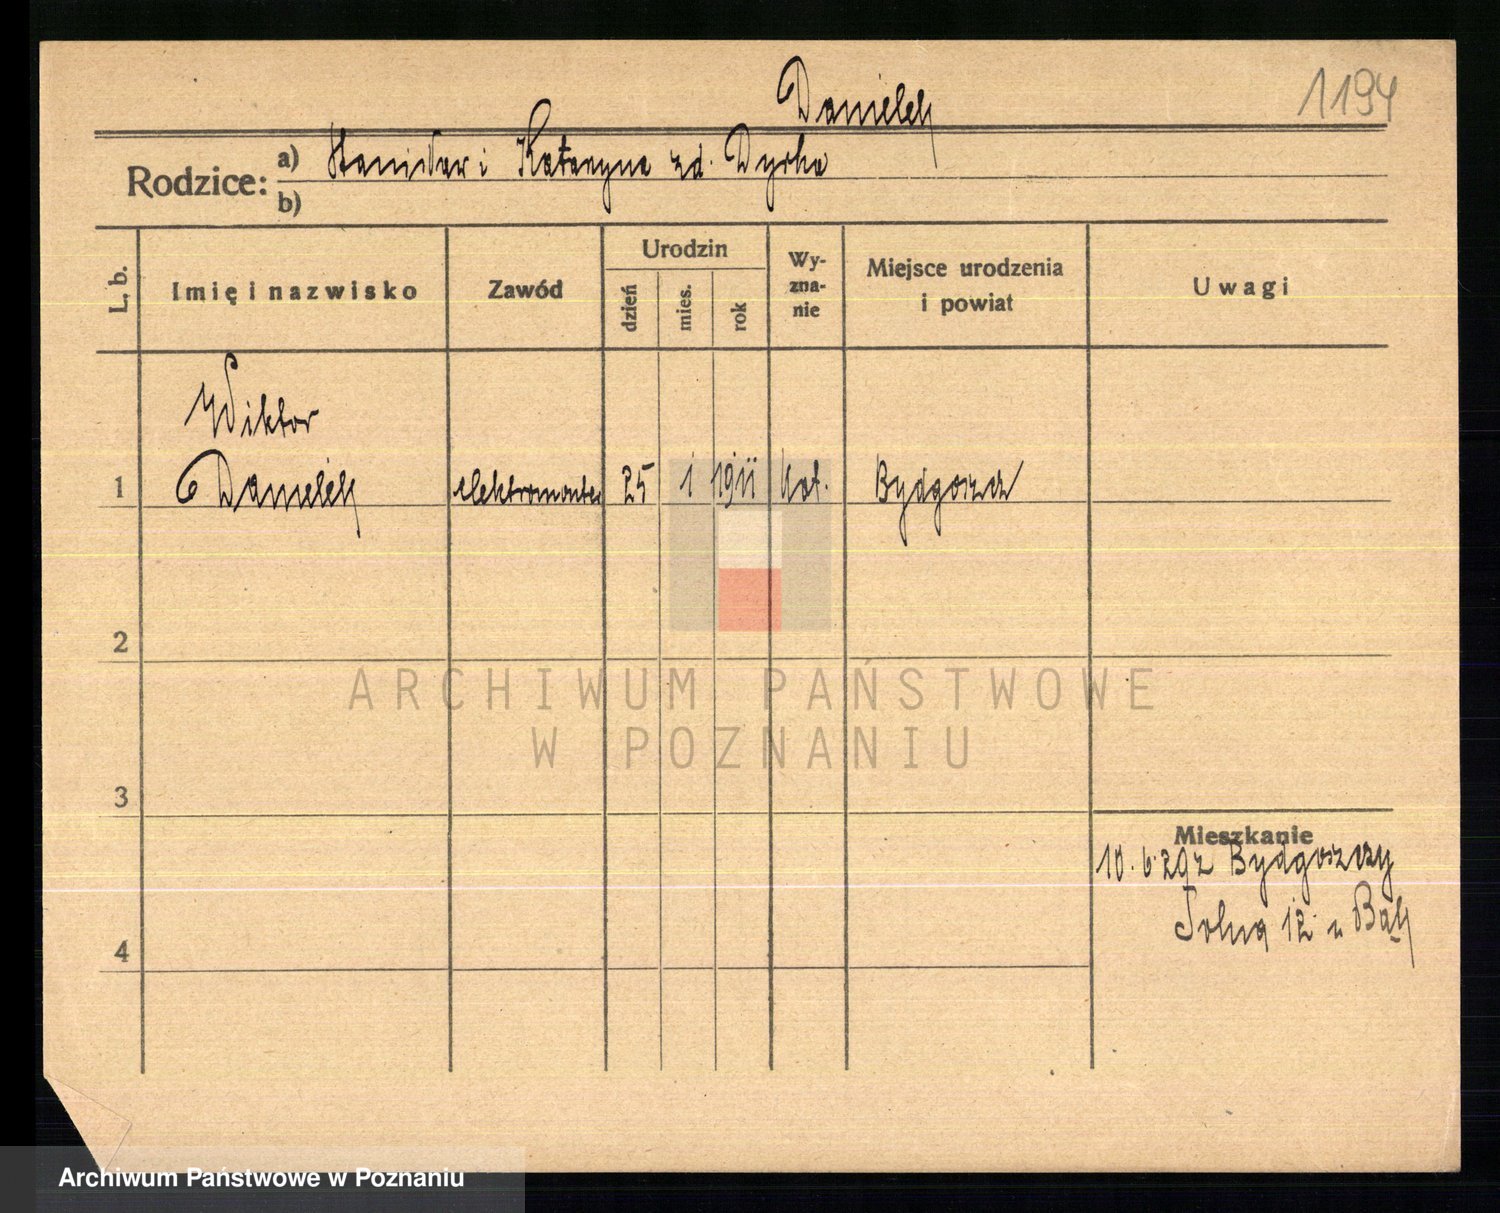 Danielek
1194
Rodzice:
a) Stanisław i Katarzyna zd. Dyrka
b)
L. b.
Imię i nazwisko
Zawód
Urodzin
dzień
mies.
rok
Wy-
zna-
nie
Miejsce urodzenia
i powiat
Uwagi
Wiktor
1 Danielek elektromonter 25 1 1911 kat. Bydgoszcz
2
ARCHIWUM PAŃSTWOWE
W POZNANIU
3
Mieszkanie
10.6.29 z Bydgoszczy
Polna 12 u
4
Archiwum Państwowe w Poznaniu